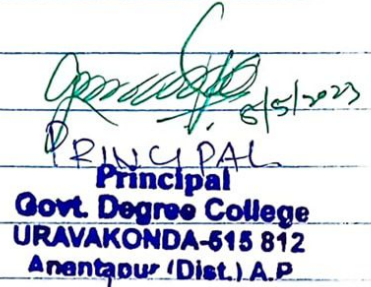 8/5/2023
PRINCIPAL
Principal
Govt. Degree College
URAVAKONDA-515 812
Anantapur (Dist.) A.P